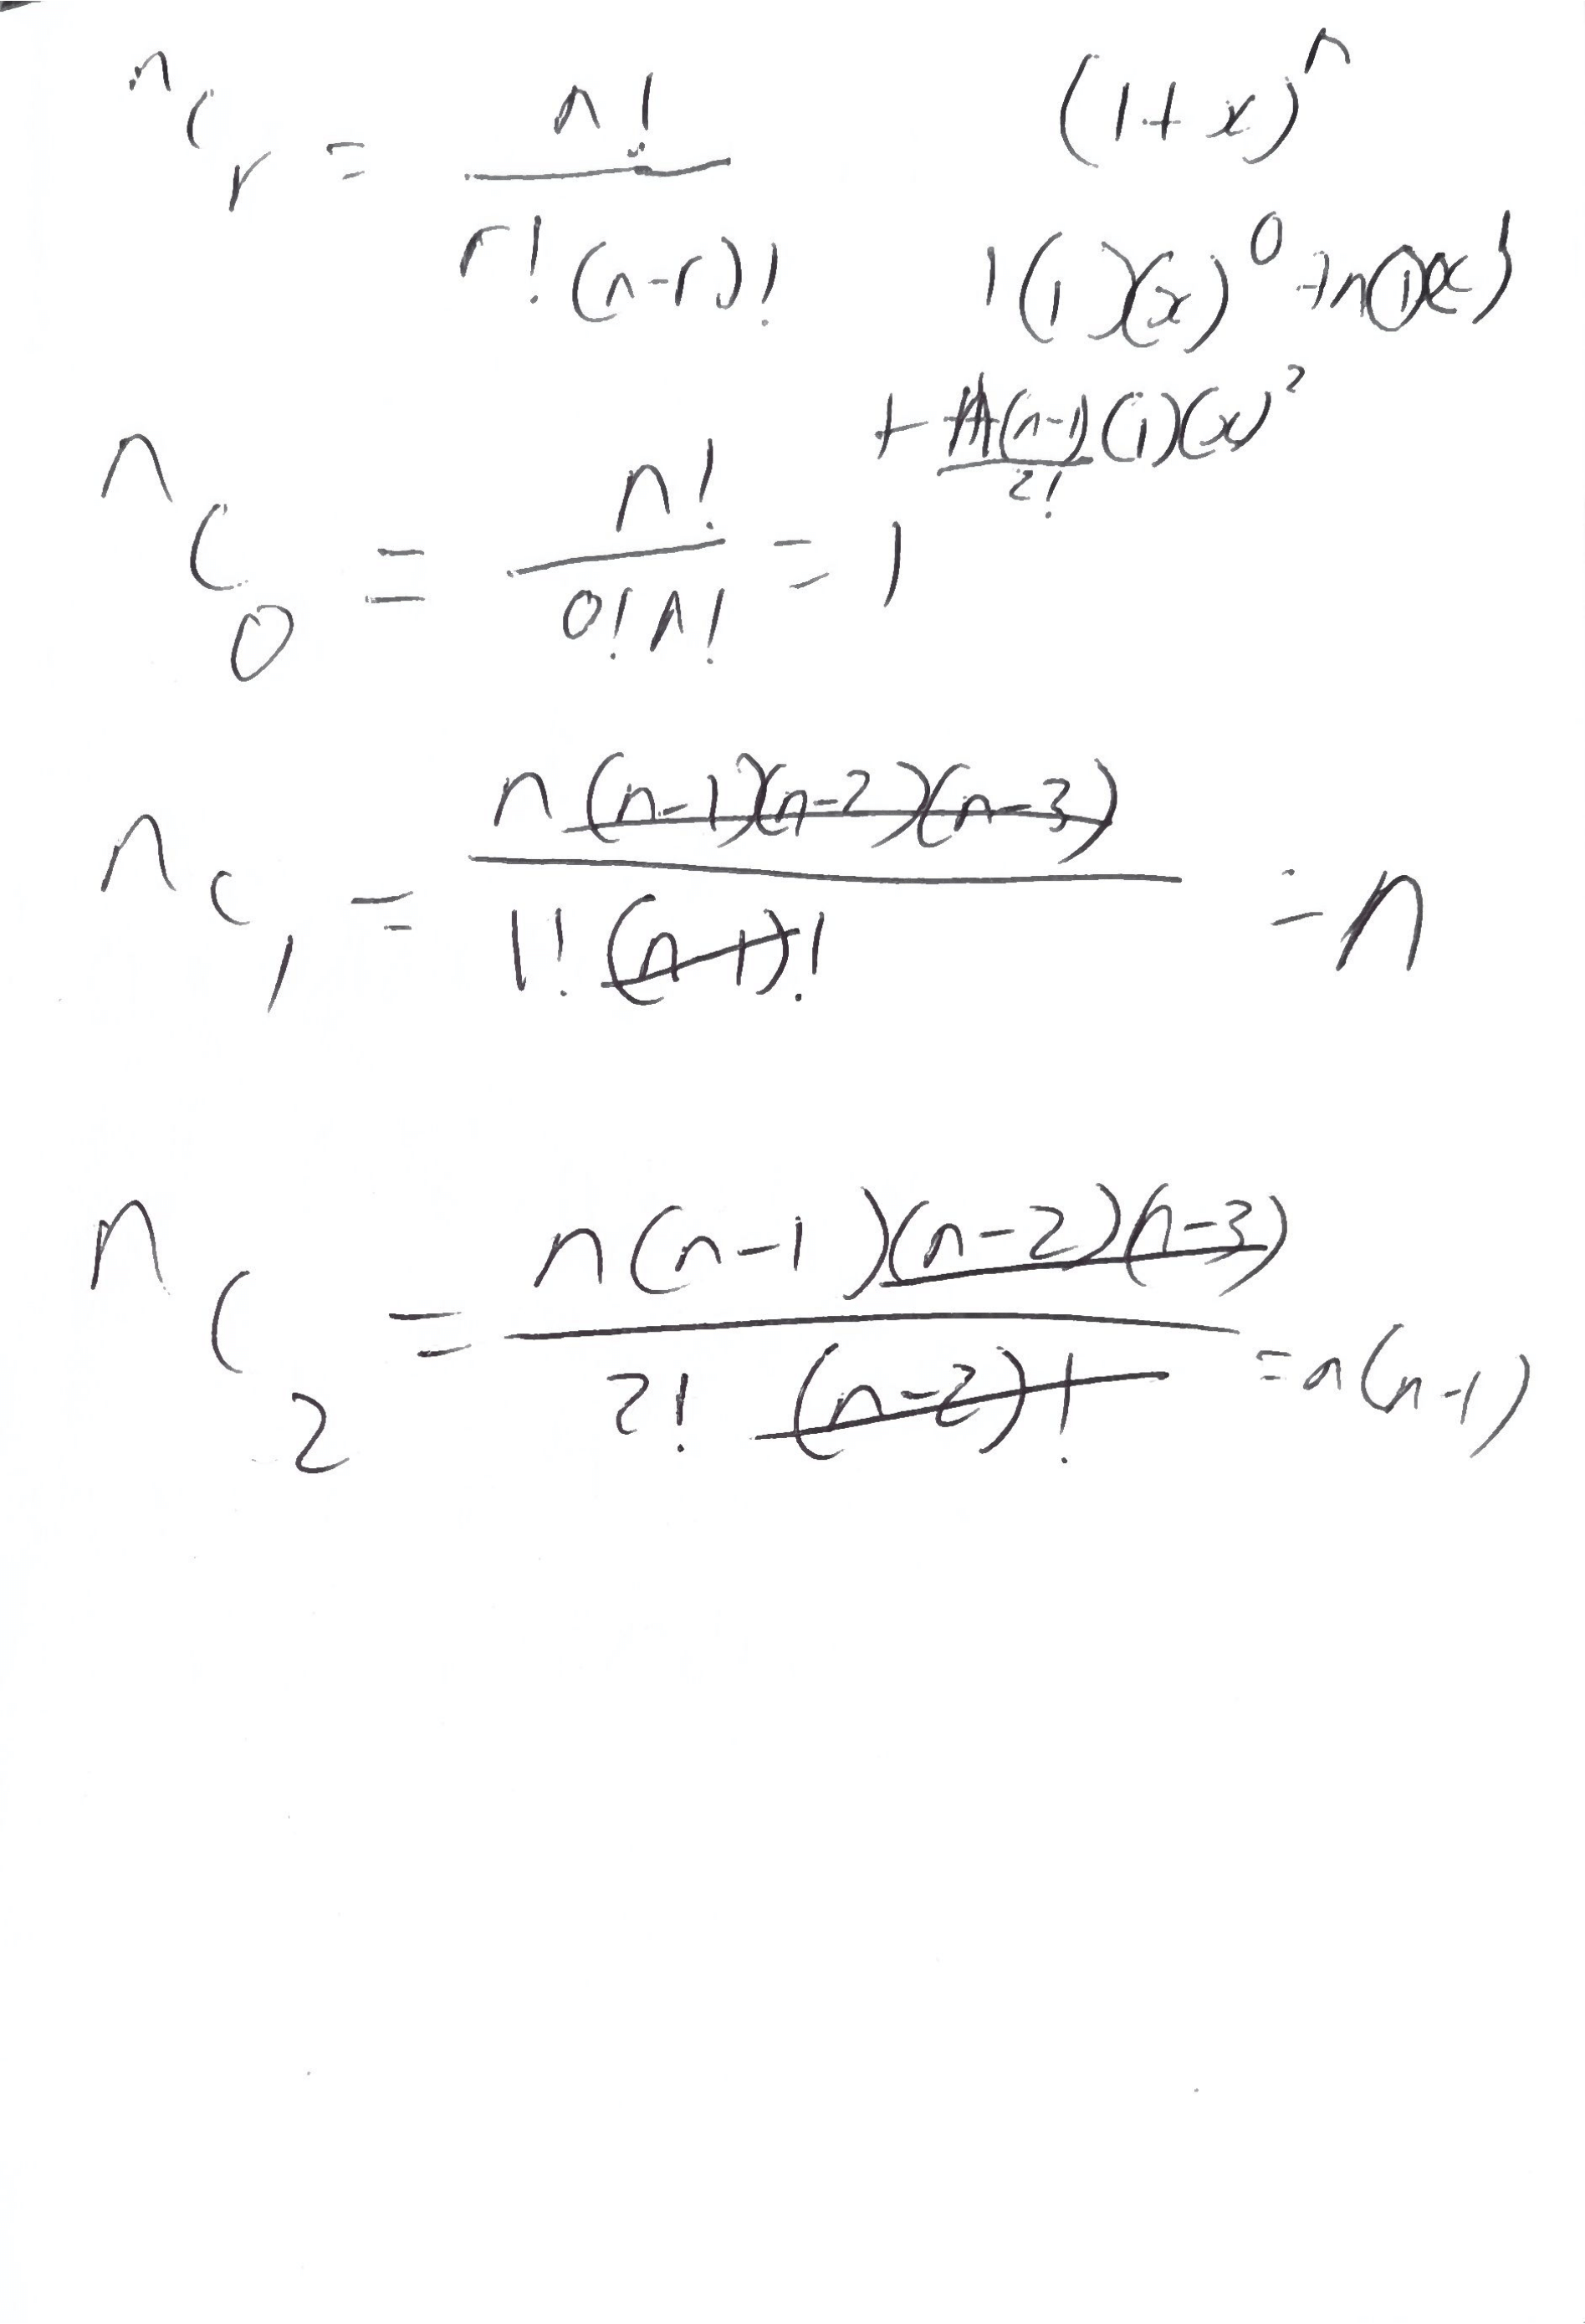 ⁿCᵣ = n! / r!(n-r)!
(1+x)ⁿ
1(1)(x)⁰ + n(1)(x)¹
+ n(n-1)/2! (1)(x)²
ⁿC₀ = n! / 0!n! = 1
ⁿC₁ = n(n-1)(n-2)(n-3) / 1!(n-1)! = n
ⁿC₂ = n(n-1)(n-2)(n-3) / 2!(n-2)! = n(n-1)